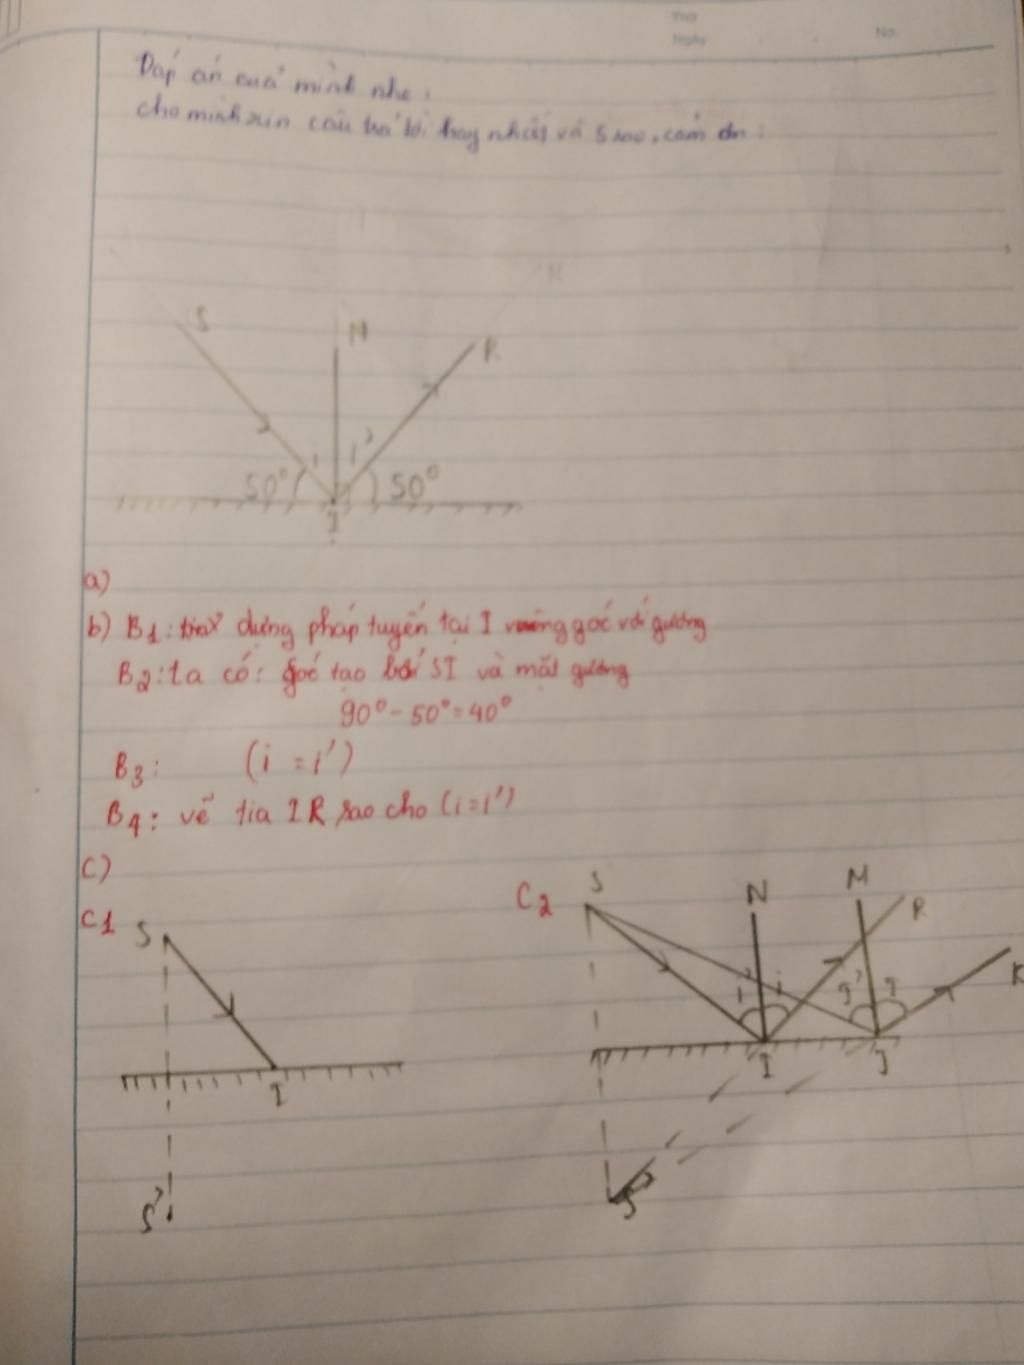 Thứ
Ngày
No.
Đáp án của mình nhe,
cho mình xin câu trả lời hay nhất và 5 sao, cảm ơn:
R
S N R
i i'
50° 50°
I
a)
b) B1: dựng pháp tuyến tại I vuông góc với gương
B2: ta có: góc tạo bởi SI và mặt gương
90° - 50° = 40°
B3: (i = i')
B4: vẽ tia IR sao cho (i=i')
c)
C1 S
I
S'
C2 S N M R
i' i J' J K
I J
S'